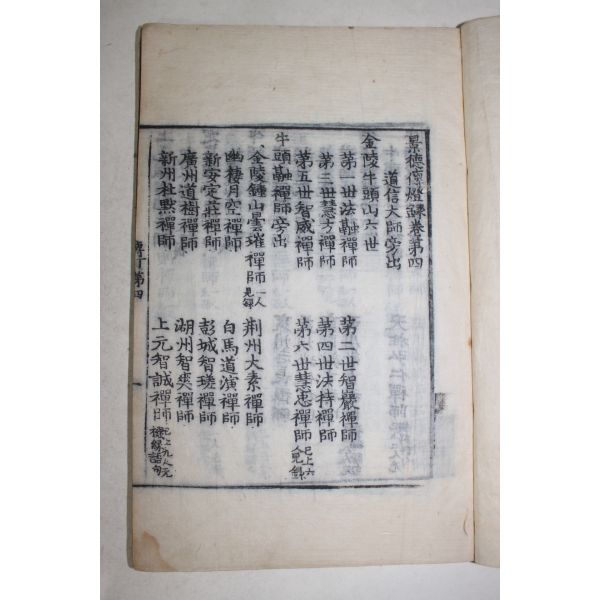 景德傳燈錄卷第四
道信大師旁出
金陵牛頭山六世
第一世法融禪師 第二世智巖禪師
第三世慧方禪師 第四世法持禪師
第五世智威禪師 第六世慧忠禪師 已上六人見錄
牛頭融禪師旁出
金陵鍾山曇璀禪師 一人見錄 荆州大素禪師
幽棲月空禪師 白馬道演禪師
新安定莊禪師 彭城智瑳禪師
廣州道樹禪師 湖州智爽禪師
新州杜默禪師 上元智誠禪師 已上九人无機緣語句
傳丁第四